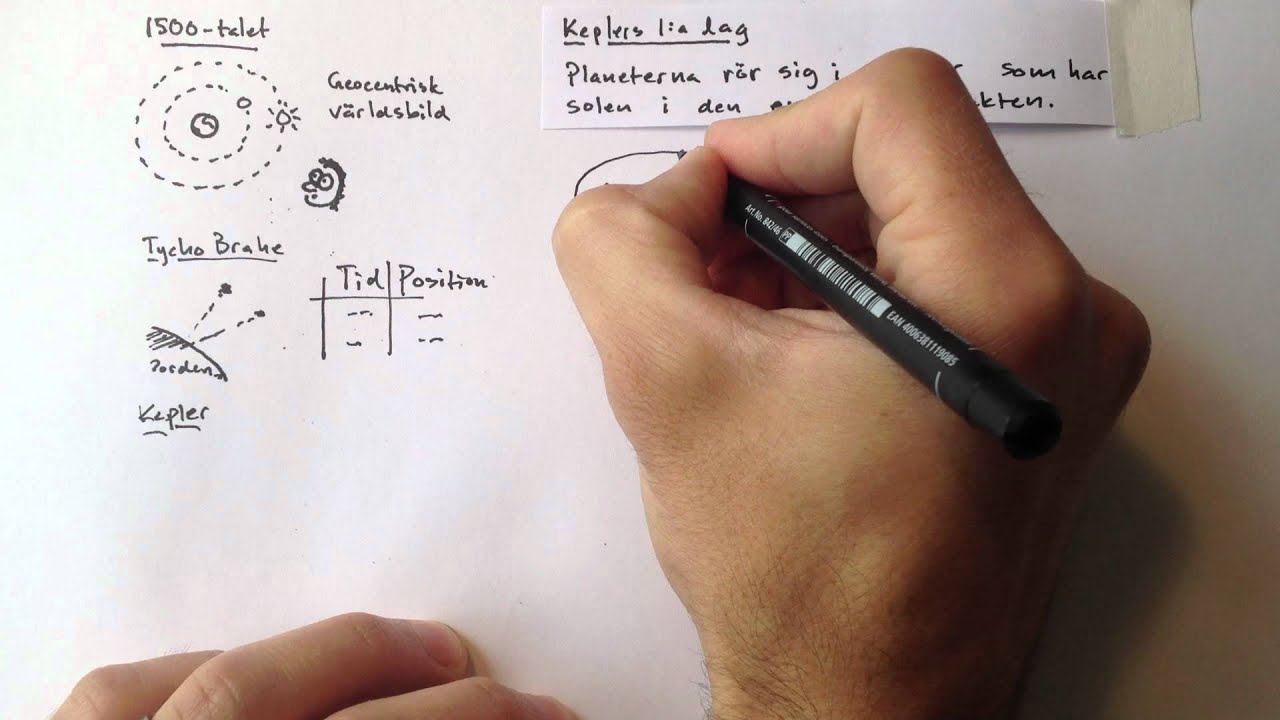 1500-talet
Geocentrisk
världsbild
Tycho Brahe
Tid Position
Jorden
Kepler
Keplers 1:a lag
Planeterna rör sig i som har
solen i den
Art.No. 842/46 PP
EAN 4006381119085